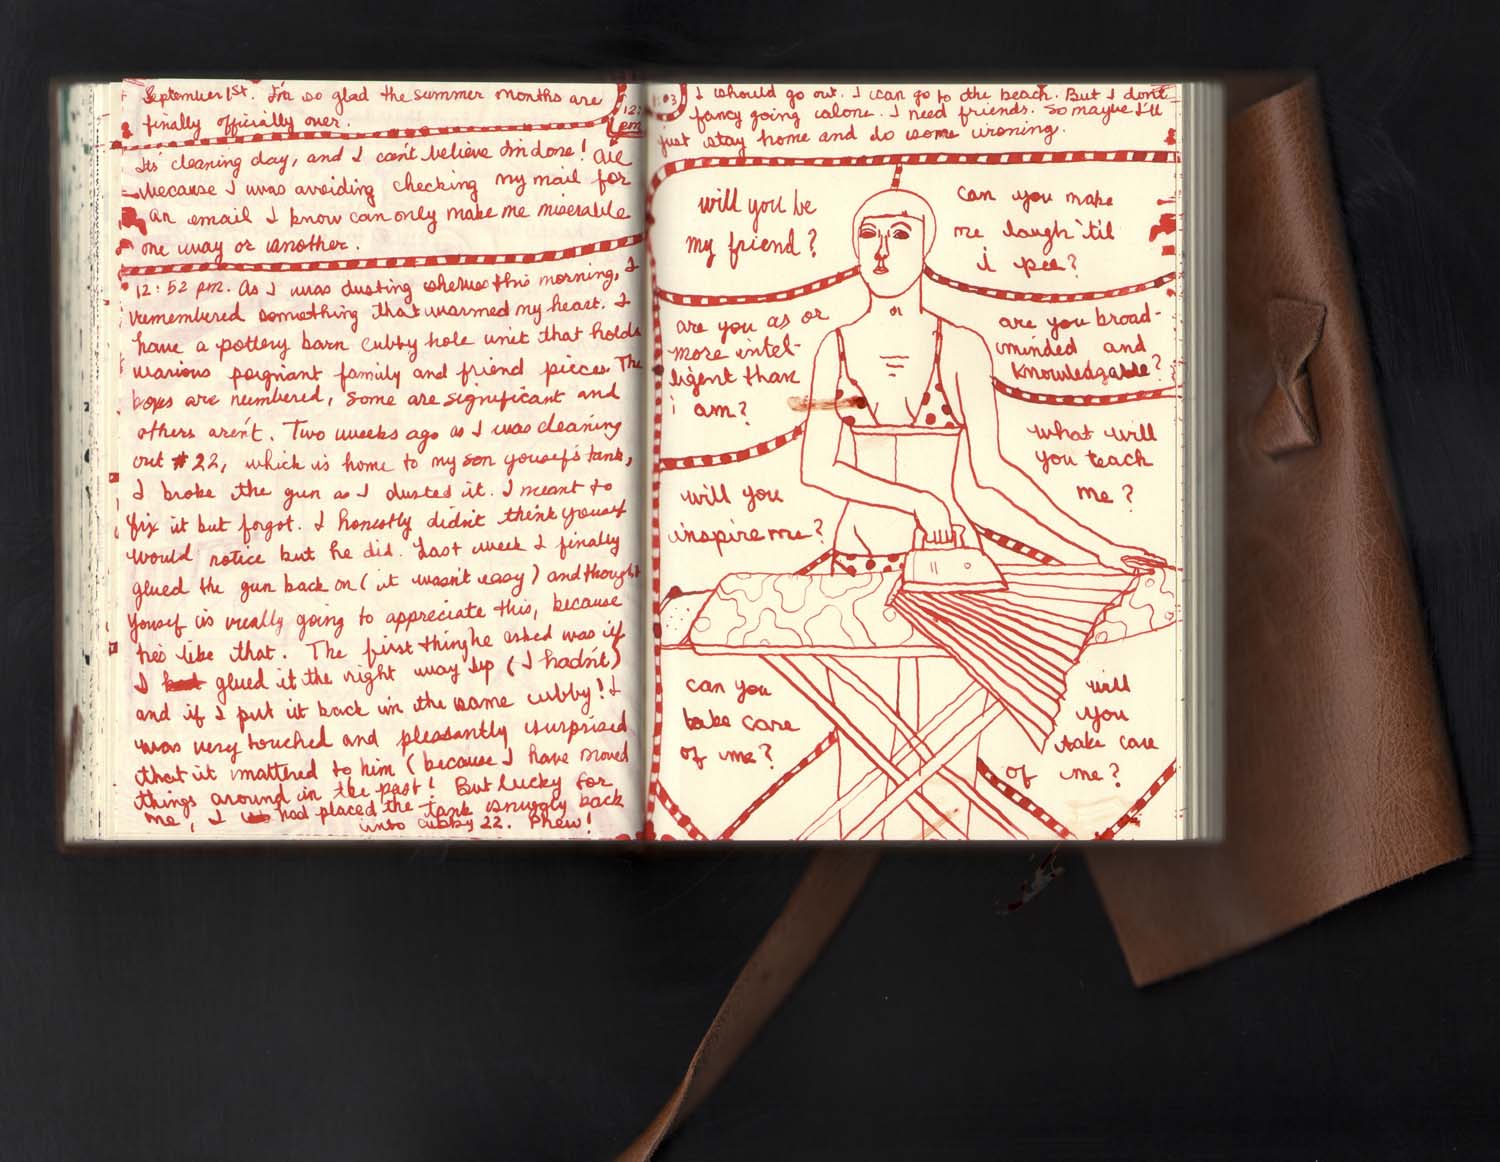 September 1st. I'm so glad the summer months are
finally officially over.
12:
pm
Its cleaning day, and I can't believe I'm done! All
because I was avoiding checking my mail for
an email I know can only make me miserable
one way or another.
12:52 pm. As I was dusting shelves this morning, I
remembered something that warmed my heart. I
have a pottery barn cubby hole unit that holds
various poignant family and friend pieces. The
boxes are numbered, some are significant and
others aren't. Two weeks ago as I was cleaning
out #22, which is home to my son yousef's tank,
I broke the gun as I dusted it. I meant to
fix it but forgot. I honestly didn't think yousef
would notice but he did. Last week I finally
glued the gun back on (it wasn't easy) and thought
yousef is really going to appreciate this, because
he's like that. The first thing he asked was if
I glued it the right way up (I hadn't)
and if I put it back in the same cubby! I
was very touched and pleasantly surprised
that it mattered to him (because I have moved
things around in the past! But lucky for
me, I had placed the tank snuggly back
into cubby 22. Phew!
1:03
I should go out. I can go to the beach. But I don't
fancy going alone. I need friends. So maybe I'll
just stay home and do some ironing.
will you be
my friend?
can you make
me laugh 'til
i pee?
are you as or
more intel-
ligent than
i am?
are you broad-
minded and
knowledgable?
will you
inspire me?
what will
you teach
me?
can you
take care
of me?
will
you
take care
of me?